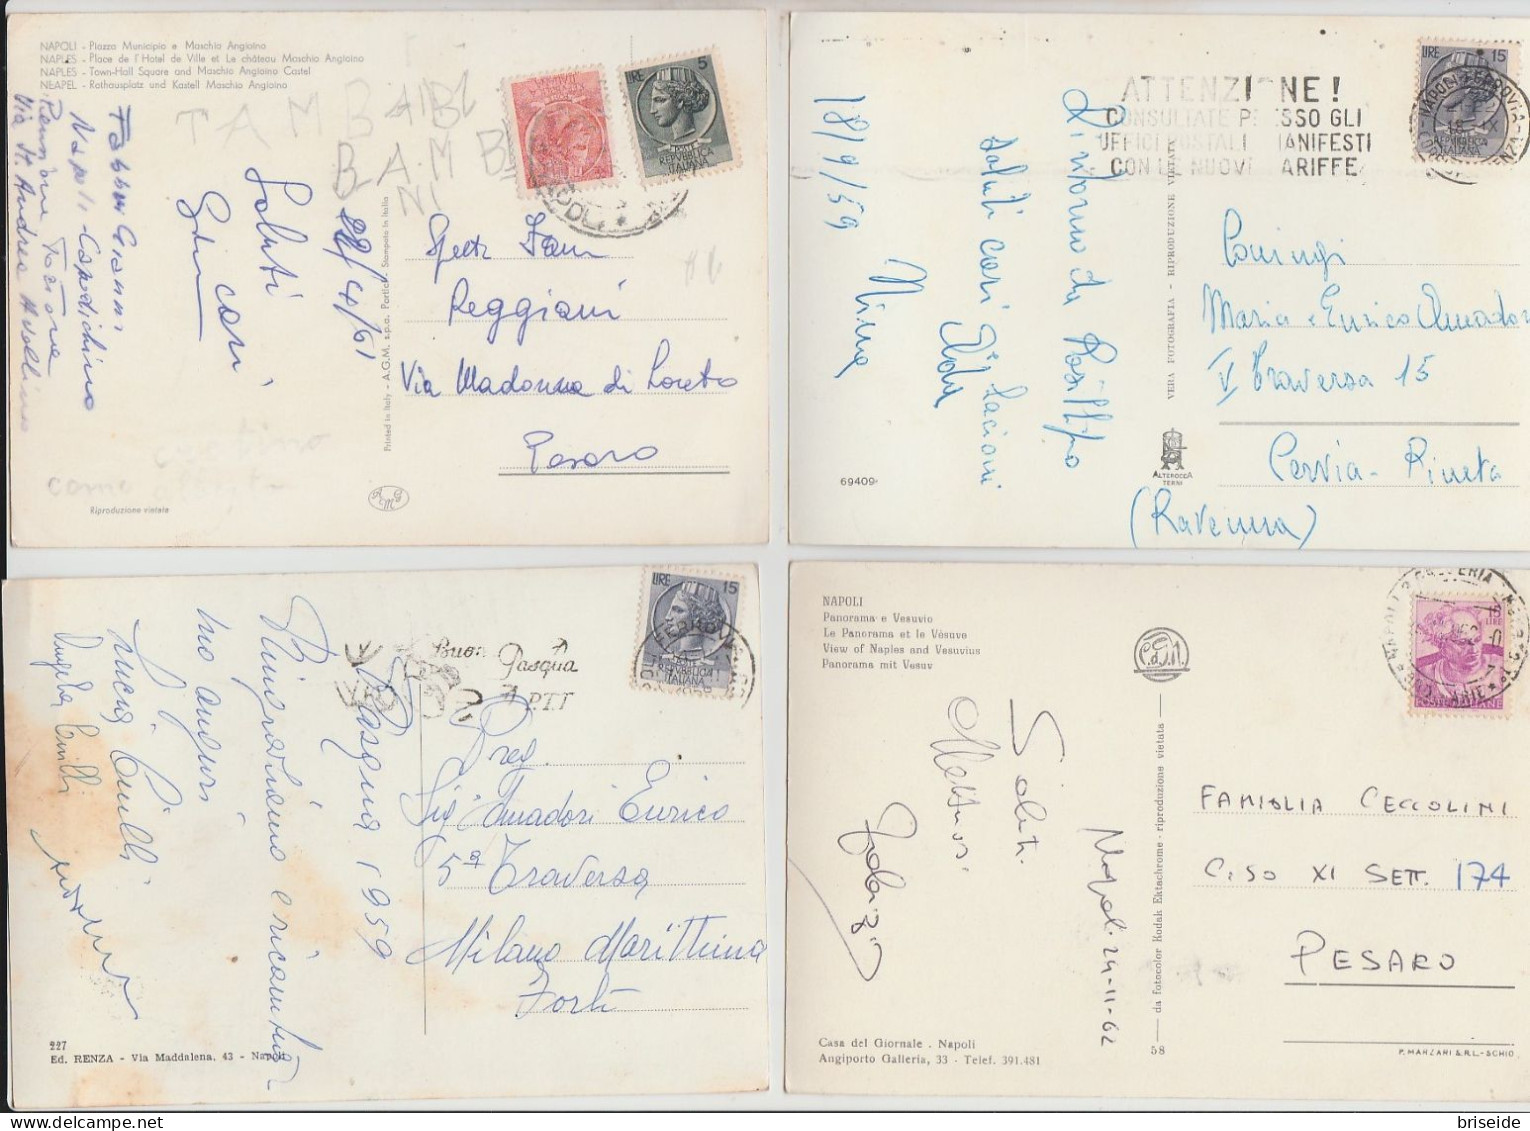 NAPOLI - Piazza Municipio e Maschio Angioino
NAPLES - Place de l'Hotel de Ville et Le château Maschio Angioino
NAPLES - Town-Hall Square and Maschio Angioino Castel
NEAPEL - Rathausplatz und Kastell Maschio Angioino
Gianni
Napoli - Capodichino
Pensione
Via
Saluti
cari
22/4/61
TAM
BAM
Spett. Fam
Reggiani
Via Madonna di Loreto
Pesaro
LIRE 5
REPVBBLICA
ITALIANA
Printed in Italy - A.G.M. s.p.a. Portici - Stampato in Italia
Riproduzione vietata
LIRE 15
ATTENZIONE!
CONSULTATE PRESSO GLI
UFFICI POSTALI I MANIFESTI
CON LE NUOVE TARIFFE
18/9/59
Di ritorno da Posillipo
saluti cari
Nina
Coniugi
Maria e Enrico Amadori
V Traversa 15
Cervia - Pineta
(Ravenna)
VERA FOTOGRAFIA - RIPRODUZIONE VIETATA
ALTEROCCA
TERNI
69409
LIRE 15
REPVBBLICA
ITALIANA
Buona Pasqua
P.T.T
Pasqua 1959
Ringraziamo e ricambia
mo auguri
Preg.
Sig. Amadori Enrico
5ª Traversa
Milano Marittima
Forlì
227
Ed. RENZA - Via Maddalena, 43 - Napoli
NAPOLI
Panorama e Vesuvio
Le Panorama et le Vèsuve
View of Naples and Vesuvius
Panorama mit Vesuv
15 LIRE
Saluti
Affettuosi
Napoli 24-11-62
FAMIGLIA CECCOLINI
C.SO XI SETT. 174
PESARO
da fotocolor Kodak Ektachrome - riproduzione vietata
58
Casa del Giornale . Napoli
Angiporto Galleria, 33 - Telef. 391.481
P. MARZARI S.R.L. - SCHIO
briseide